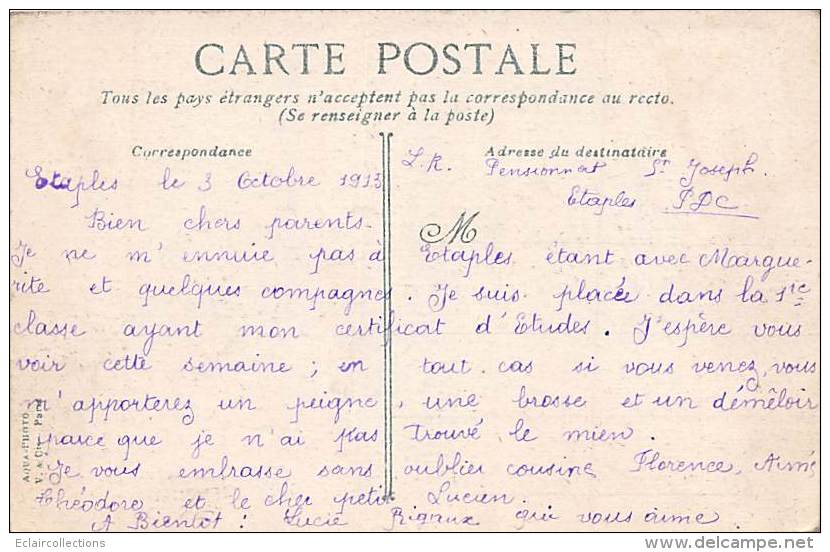 CARTE POSTALE
Tous les pays étrangers n'acceptent pas la correspondance au recto.
(Se renseigner à la poste)
Correspondance
Adresse du destinataire
L.R. Pensionnat St Joseph.
Etaples PDC
Etaples le 3 Octobre 1913
Bien chers parents
M
Je ne m'ennuie pas à Etaples étant avec Margue-
rite et quelques compagnes. Je suis placée dans la 1re
classe ayant mon certificat d'Etudes. J'espère vous
voir cette semaine ; en tout cas si vous venez, vous
m'apporterez un peigne, une brosse et un démêloir
parce que je n'ai pas trouvé le mien.
Je vous embrasse sans oublier cousine Florence, Aimé
Théodore et le cher petit Lucien.
A Bientôt : Lucie Rigaux qui vous aime.
AQUA-PHOTO
V. & Cie Paris
Eclaircollections
www.delcampe.net